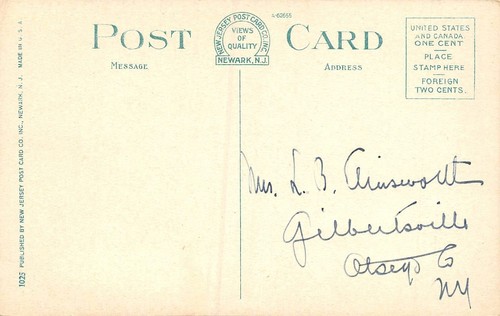 POST CARD
MESSAGE ADDRESS
NEW JERSEY POST CARD CO. INC.
VIEWS
OF
QUALITY
NEWARK, N.J.
UNITED STATES
AND CANADA
ONE CENT
PLACE
STAMP HERE
FOREIGN
TWO CENTS.
1025 PUBLISHED BY NEW JERSEY POST CARD CO. INC., NEWARK, N. J. MADE IN U. S. A
Mrs. L. B. Ainsworth
Gilbertsville
Otsego Co
NY